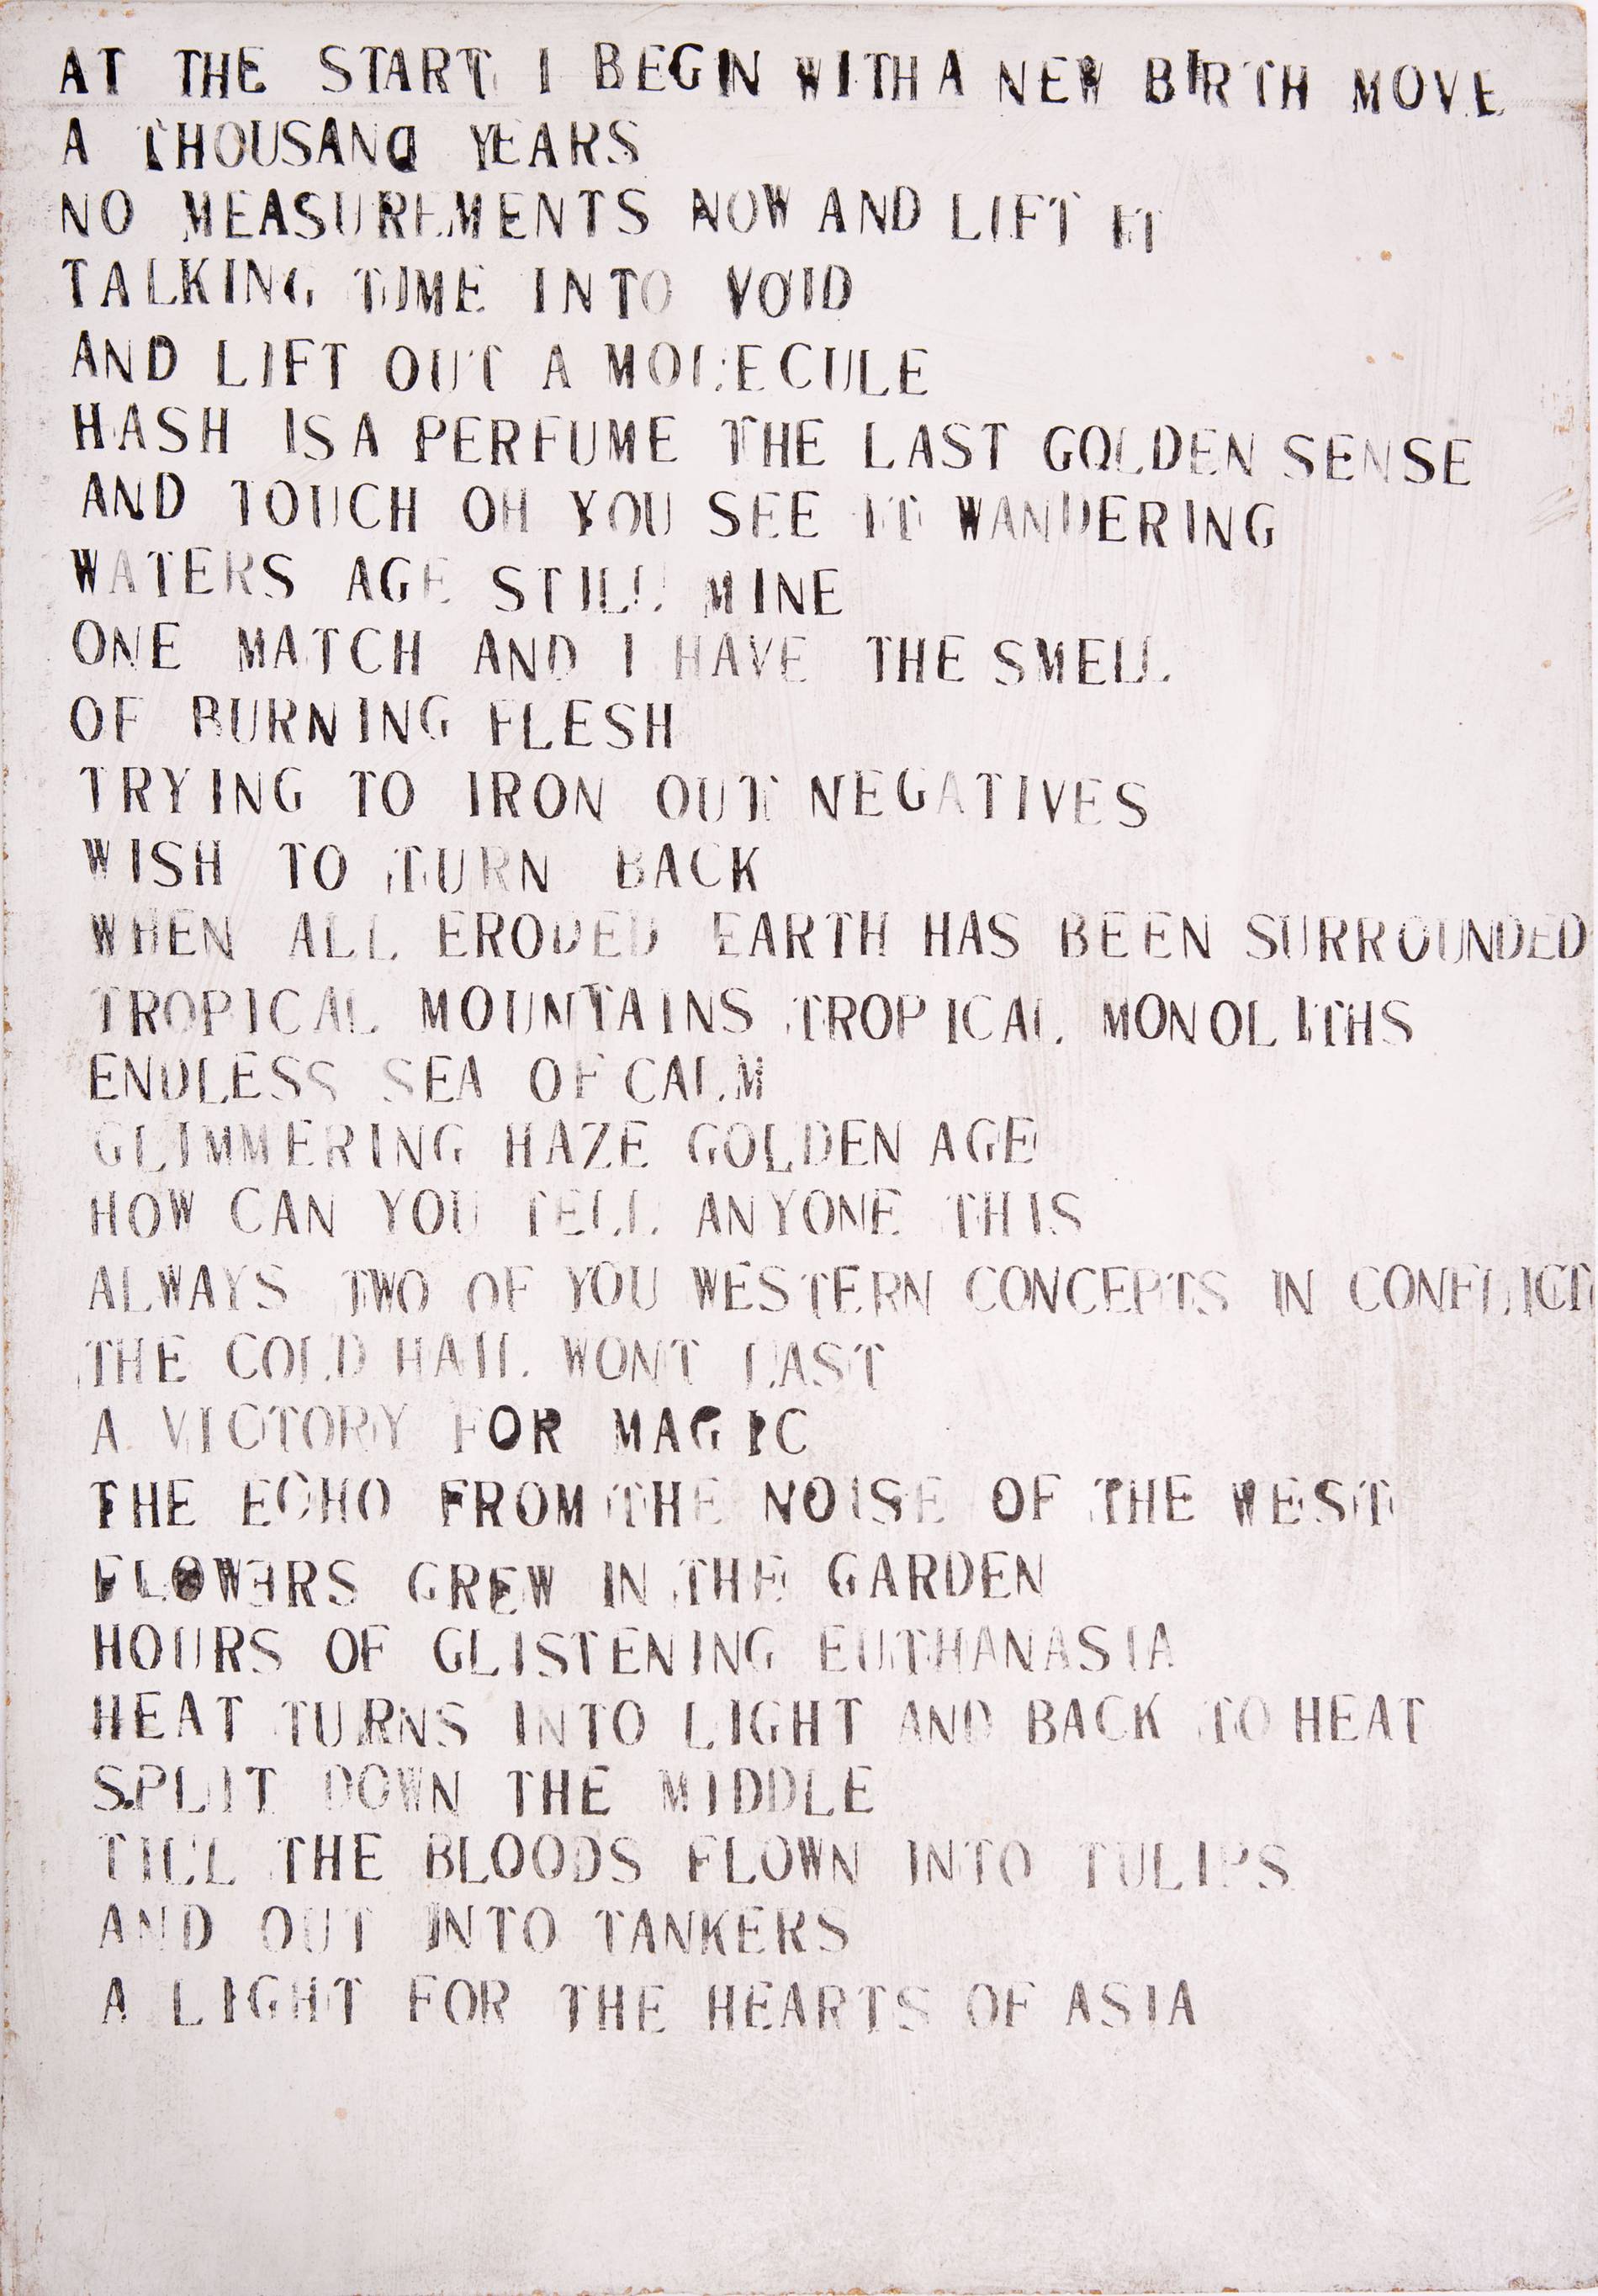 AT THE START I BEGIN WITH A NEW BIRTH MOVE
A THOUSAND YEARS
NO MEASUREMENTS NOW AND LIFT IT
TALKING TIME INTO VOID
AND LIFT OUT A MOLECULE
HASH IS A PERFUME THE LAST GOLDEN SENSE
AND TOUCH OH YOU SEE IT WANDERING
WATERS AGE STILL MINE
ONE MATCH AND I HAVE THE SMELL
OF BURNING FLESH
TRYING TO IRON OUT NEGATIVES
WISH TO TURN BACK
WHEN ALL ERODED EARTH HAS BEEN SURROUNDED
TROPICAL MOUNTAINS TROPICAL MONOLITHS
ENDLESS SEA OF CALM
GLIMMERING HAZE GOLDEN AGE
HOW CAN YOU TELL ANYONE THIS
ALWAYS TWO OF YOU WESTERN CONCEPTS IN CONFLICT
THE COLD HAIL WONT LAST
A VICTORY FOR MAGIC
THE ECHO FROM THE NOISE OF THE WEST
FLOWERS GREW IN THE GARDEN
HOURS OF GLISTENING EUTHANASIA
HEAT TURNS INTO LIGHT AND BACK TO HEAT
SPLIT DOWN THE MIDDLE
TILL THE BLOODS FLOWN INTO TULIPS
AND OUT INTO TANKERS
A LIGHT FOR THE HEARTS OF ASIA